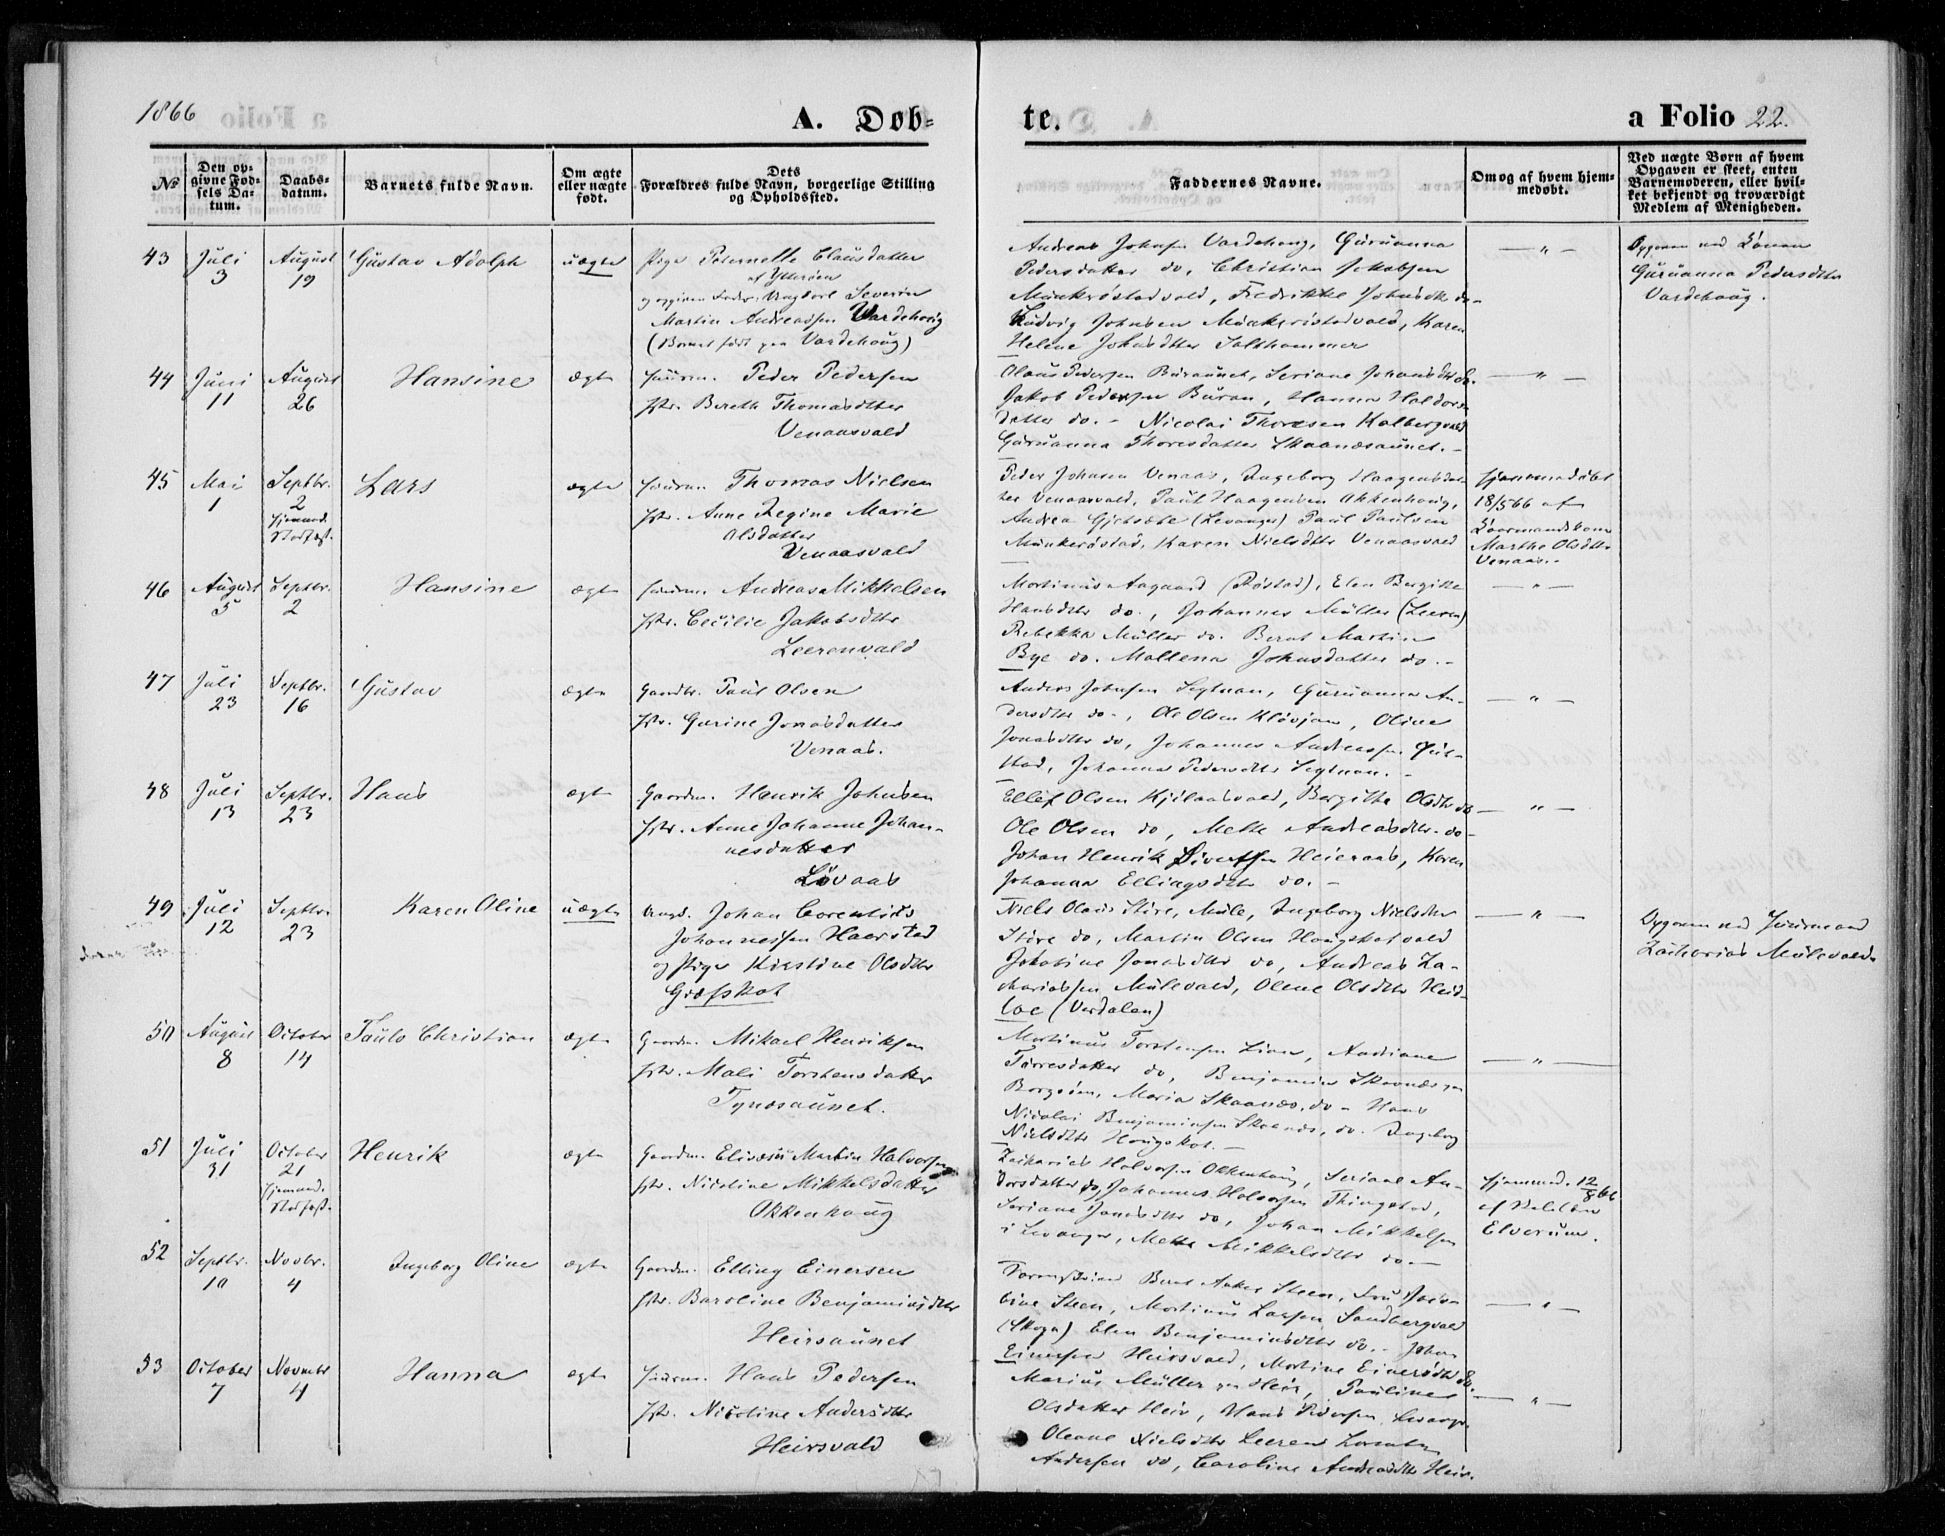 1866
A. Døb-
te.
a Folio 22.
No
Den opgivne Fødsels Datum.
Daabsdatum.
Barnets fulde Navn.
Om ægte eller uægte født.
Dets Forældres fulde Navn, borgerlige Stilling og Opholdssted.
Faddernes Navne.
Om og af hvem hjemmedøbt.
Ved uægte Børn af hvem Opgaven er skeet, enten Barnemoderen, eller hvilket bekjendt og troværdigt Medlem af Menigheden.
43 Juli 3 August 19 Gustav Adolph uægte
Pige Peternelle Clausdatter
af Ytterøen
Severin
Martin Andreassen Vardehoug
(Barnet født paa Vardehoug)
Andreas Johnsen Vardehoug, Guruanna
Pedersdatter do, Christian Jakobsen
Munkerøstadvald, Fredrikke Johnsdtr do-
Ludvig Johnsen Munkerøstadvald, Karen
Helene Johnsdtter Salthammer
— " —
Opgaven ved Konen
Guruanna Pedersdtter
Vardehoug.
44 Juni 11 August 26 Hansine ægte
Huusm. Peder Pedersen
Hstr. Bereth Thomasdtter
Venaasvald
Olaus Pedersen Buraunet, Seriane Johansdtr do.
Jakob Pedersen Buran, Hanna Haldors-
datter do. - Nicolai Thoresen Kalbergvald
Guruanna Thoresdatter Skaanesaunet. -
— " —
45 Mai 1 Septbr. 2 Hjemmed. Stadfæst. Lars ægte
Huusm. Thomas Nielsen
Hstr. Anne Regine Marie
Olsdatter
Venaasvald
Peder Johnsen Venaas, Ingeborg Haagensdat-
ter Venaasvald, Paul Haagensen Okkenhoug,
Andrea Gjetsebe (Levanger) Paul Paulsen
Munkerøstad, Karen Nielsdtr Venaasvald
Hjemmedøbt
18/5 66 af
Marthe Olsdtter
Venaas.
46 August 5 Septbr. 2 Hansine ægte
Huusm. Andreas Mikkelsen
Hstr. Cecilie Jakobsdtr
Leerenvald
Mortinus Aagaard (Røstad), Elen Bergitte
Hansdtr do., Johannes Müller (Leeren)
Rebekka Müller do. Bernt Martin
Bye do. Mallena Johnsdatter do. -
— " —
47 Juli 23 Septbr. 16 Gustav ægte
Gaardbr. Paul Olsen
Hstr. Gurine Jonasdatter
Venaas.
Anders Johnsen Segtnan, Guruanna An-
dersdtter do., Ole Olsen Kløvjan, Oline
Jonasdtr do, Johannes Andreassen
stad, Johanna Pedersdtr Segtnan. -
— " —
48 Juli 13 Septbr. 23 Hans ægte
Gaardm. Henrik Johnsen
Hstr. Anne Johanne Johan-
nesdatter
Løvaas
Ellef Olsen Kjelaasvald, Bergitte Olsdtr do
Ole Olsen do, Mette Andreasdtr. do-
Johan Henrik Sivertsen Heieraas, Karen
Johanna Ellingsdtr do. -
— " —
49 Juli 12 Septbr. 23 Karen Oline uægte
Ungk. Johan Corentius
Johannessen Haerstad
og Pige Kirstine Olsdtr
Græfskot
Niels Olavs Støre, Mule, Ingeborg Nielsdtter
Støre do, Martin Olsen Hougskotvald
Jakobine Jonasdtr do, Andreas Za-
chariassen Mulevald, Olene Olsdtr Heid-
loe (Verdalen)
— " —
Opgaven ved Huusmand
Zacharias Mulevald.
50 August 8 October 14 Paulo Christian ægte
Gaardm. Mikael Henriksen
Hstr. Mali Torstensdatter
Tynesaunet.
Mortinus Torstensen Lian, Andriane
Torresdatter do, Benjamin Skaanes paa
Borgsøen, Maria Skaanes, do - Hans
Nicolai Benjaminsen Skaanes, do. Ingeborg
Nielsdtr Hougskot. -
— " —
51 Juli 31 October 21 Hjemmed. Stadfæst. Henrik ægte
Gaardm. Elisæus Martin Halvorsen
Hstr. Nicoline Mikkelsdatter
Okkenhoug
Zacharias Halvorsen Okkenhoug, Seriane An-
dorsdatter do, Johannes Halvorsen Thingstad,
Seriane Jonasdtr do, Johan Mikkelsen
i Levanger, Mette Mikkelsdtr do -
Hjemmed. 12/8 66
Elverum.
52 Septbr. 10 Novbr. 4 Ingeborg Oline ægte
Gaardm. Elling Einersen
Hstr. Baroline Benjaminsdtr
Heirsaunet
Bernt Anker Steen, Fru Jaco-
bine Steen, Mortinus Larsen Sandbergvald
(Skogn) Elen Benjaminsdtr do.. Johan
Einersen Heirsvald, Martine Einersdtr do.
— " —
53 October 7 Novmbr 4 Hanna ægte
Huusm. Hans Pedersen
Hstr. Nicoline Andersdtr
Heirsvald
Marius Müller paa Heir, Pauline
Olsdatter Heir, Hans Pedersen Levanger
Oleane Nielsdtr Leeren
Andersen do, Caroline Andreasdtr Heir.
— " —